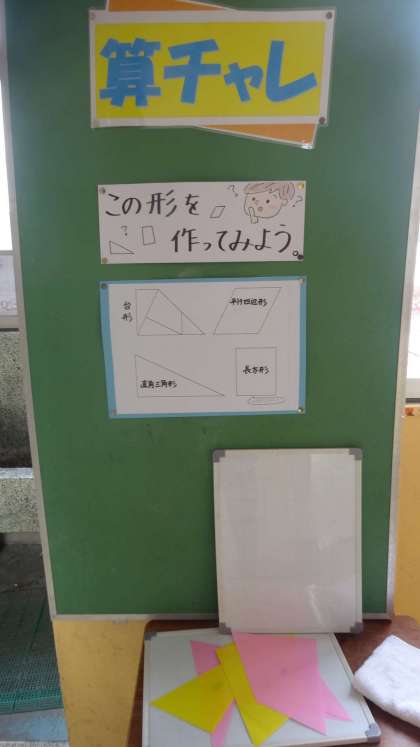 算チャレ
この形を
作ってみよう。
台形
平行四辺形
直角三角形
長方形